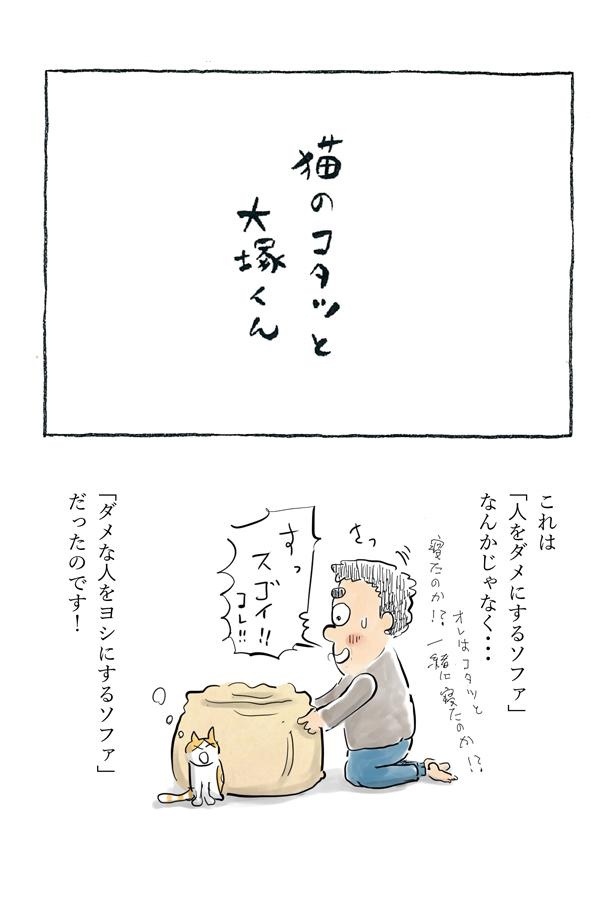 猫のコタツと
大塚くん
これは
「人をダメにするソファ」
なんかじゃなく・・・
寝たのか!?
オレはコタツと
一緒に寝たのか!?
さっ
すっ
スゴイ!!
コレ!!
「ダメな人をヨシにするソファ」
だったのです!